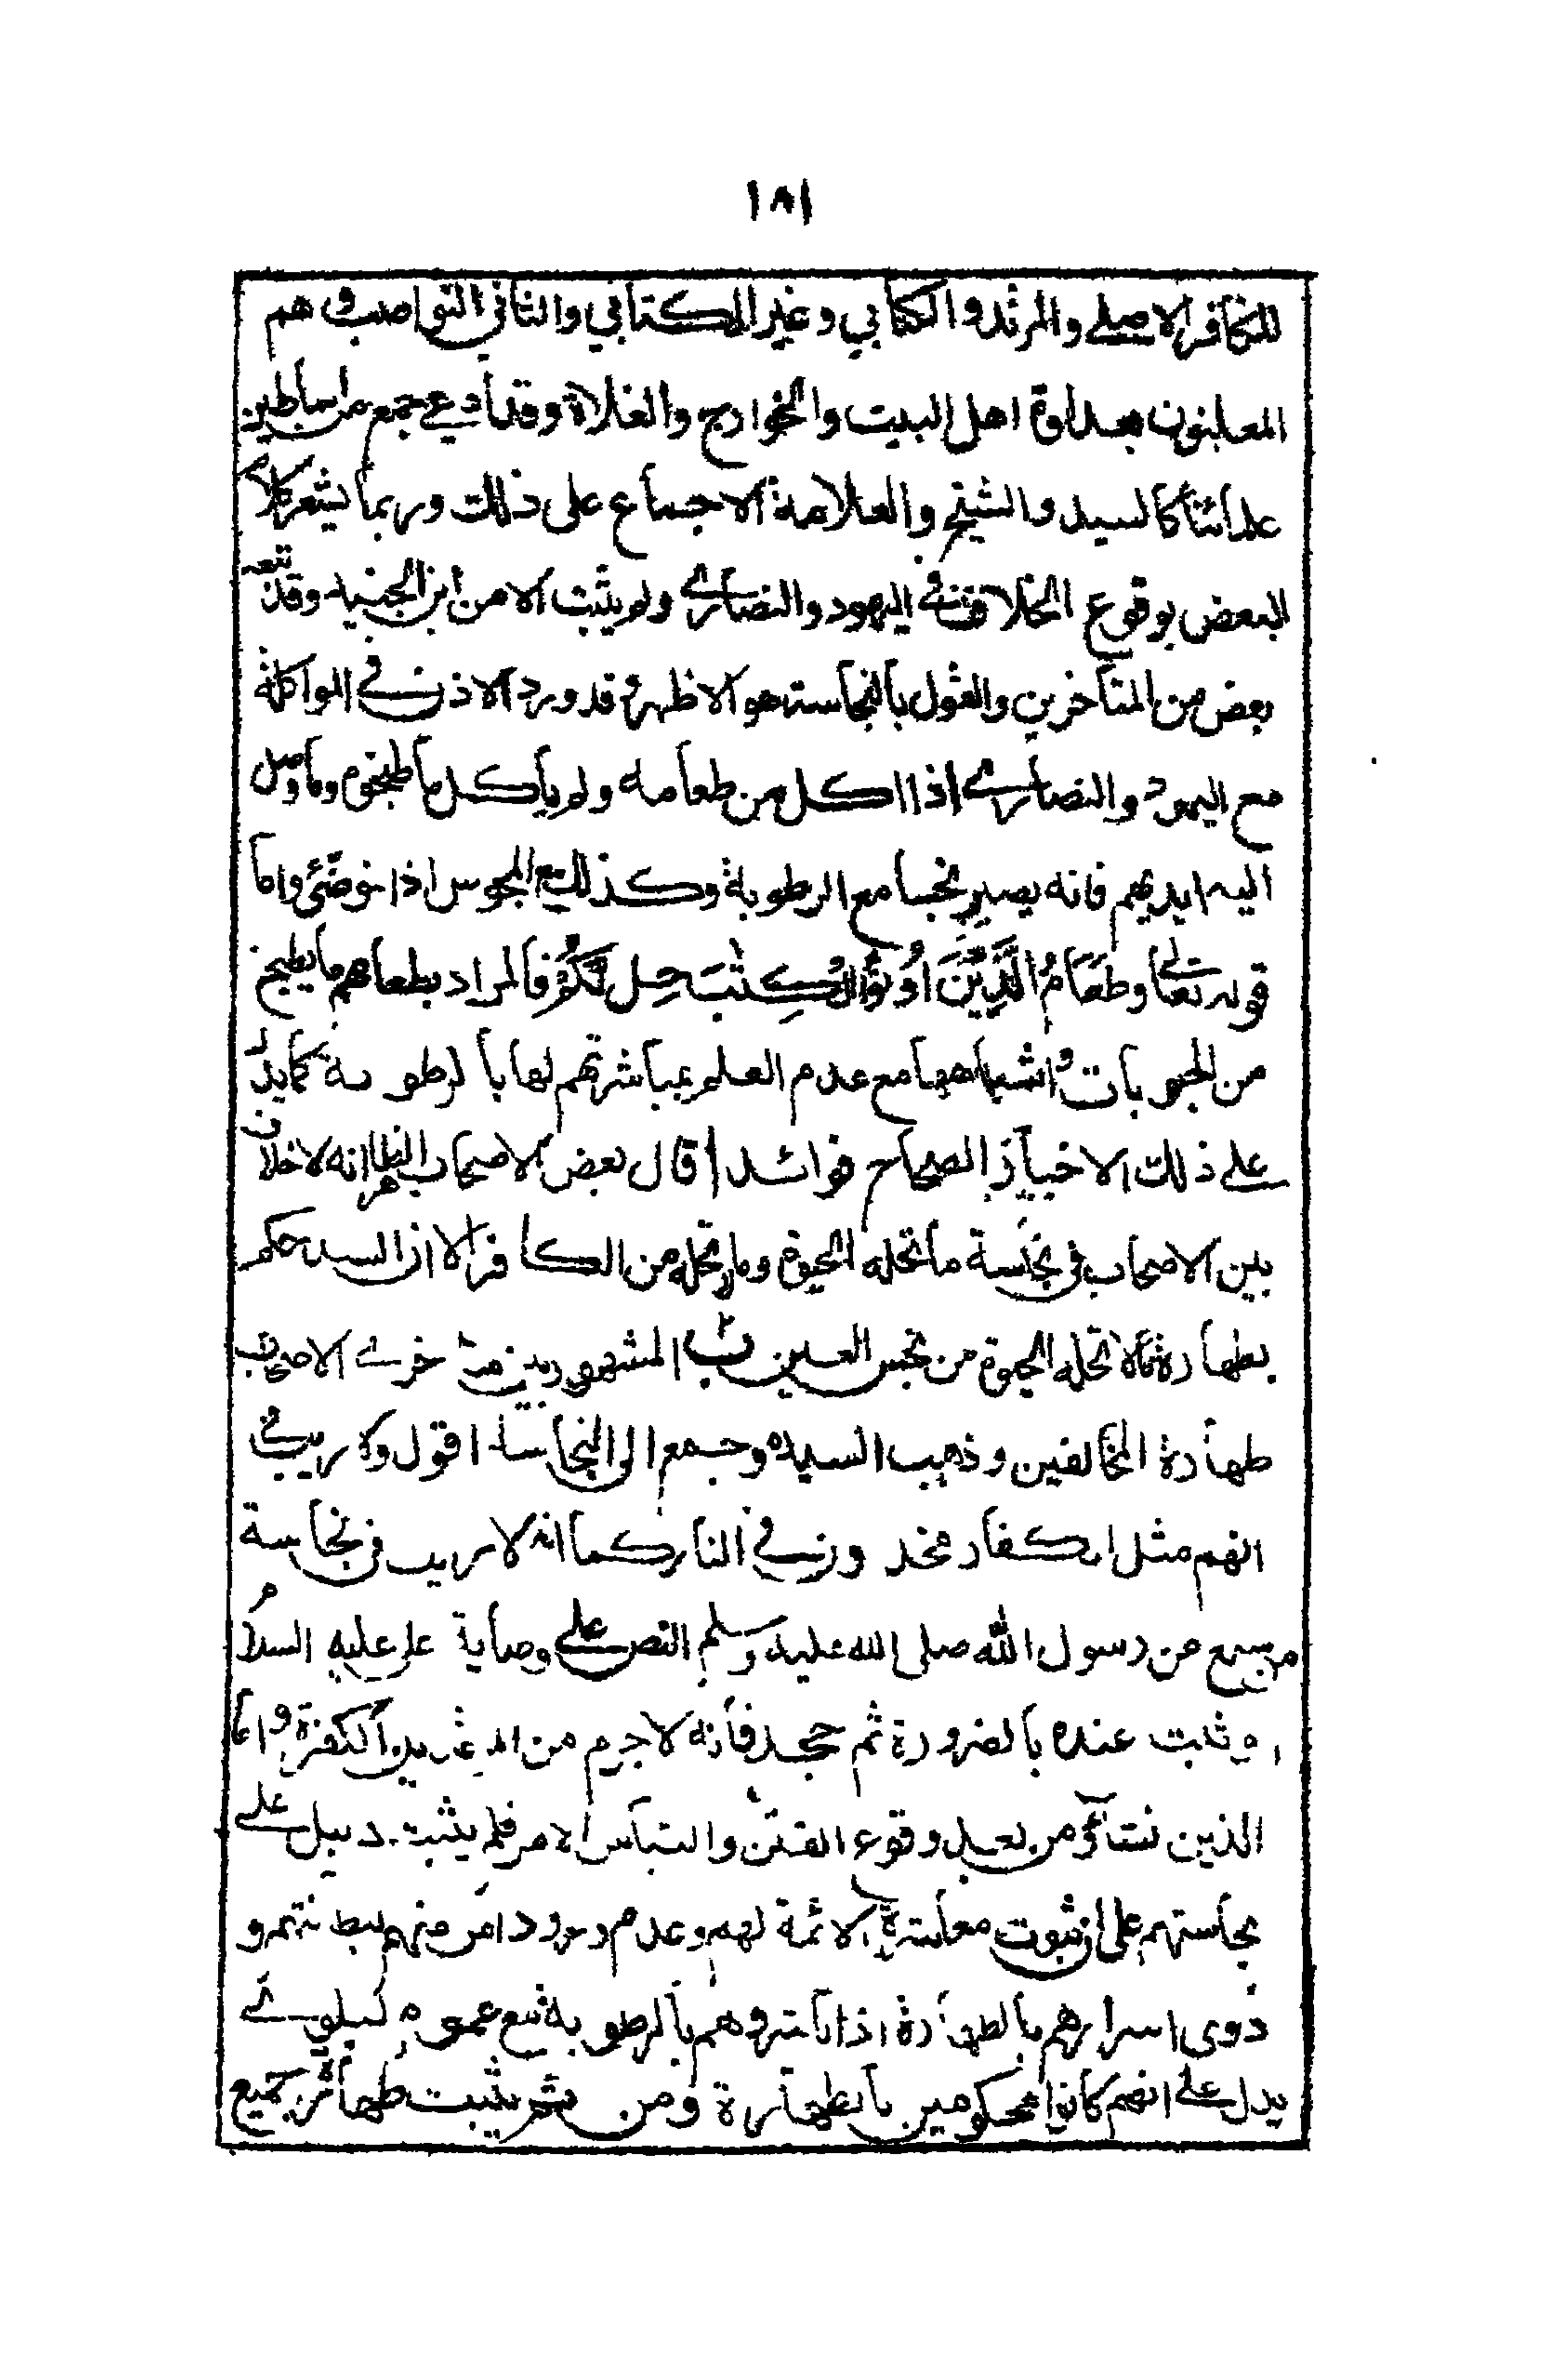 ١٨١
للكافر الاصلي والمرتد والكتابي وغير الكتابي والثاني النواصب وهم
المعلنون بعداوة اهل البيت والخوارج والغلاة وقد ادعي جمع من اساطين
علمائنا كالسيد والشيخ والعلامة الاجماع على ذلك وربما يشعر كلام
البعض بوقوع الخلاف في اليهود والنصارى ولم يثبت الا من ابن الجنيد وقد تبعه
بعض من المتاخرين والقول بالنجاسة هو الاظهر وقد ورد الاذن في المواكلة
مع اليهود والنصارى اذا اكل من طعامه ولم ياكل ما طبخوه وما وصل
اليه ايديهم فانه يصير نجسا مع الرطوبة وكذلك مع المجوس اذا توضئ واما
قوله تعالى وَطَعَامُ الَّذِينَ اُوتُوا الْكِتٰبَ حِلٌّ لَكُمْ فالمراد بطعامهم ما يطبخ
من الحبوبات واشباهها مع عدم العلم بمباشرتهم لها بالرطوبة كما يدل
على ذلك الاخبار الصحاح فوائد ا قال بعض الاصحاب الظاهر انه لا خلاف
بين الاصحاب في نجاسة ما تحله الحيوة وما لا تحله من الكافر الا ان السيد حكم
بطهارة ما لا تحله الحيوة من نجس العين ب المشهور بين متاخرى الاصحاب
طهارة المخالفين وذهب السيد وجمع الى النجاسة اقول ولا ريب في
انهم مثل الكفار مخلدون في النار كما انه لا ريب في نجاسة
من سمع من رسول الله صلى الله عليه وسلم النص على وصاية علي عليه السلام
او ثبت عنده بالضرورة ثم جحد فانه لا جرم من المرتدين الكفرة واما
الذين نشاؤ من بعد وقوع الفتن والتباس الامر فلم يثبت دليل على
نجاستهم على ان ثبوت معاشرة الائمة لهم وعدم ورود امر منهم لبطانتهم و
ذوى اسرارهم بالطهارة اذا باشروهم بالرطوبة مع عموم البلوى
يدل على انهم كانوا محكومين بالطهارة ومن ثم يثبت طهارة جميع